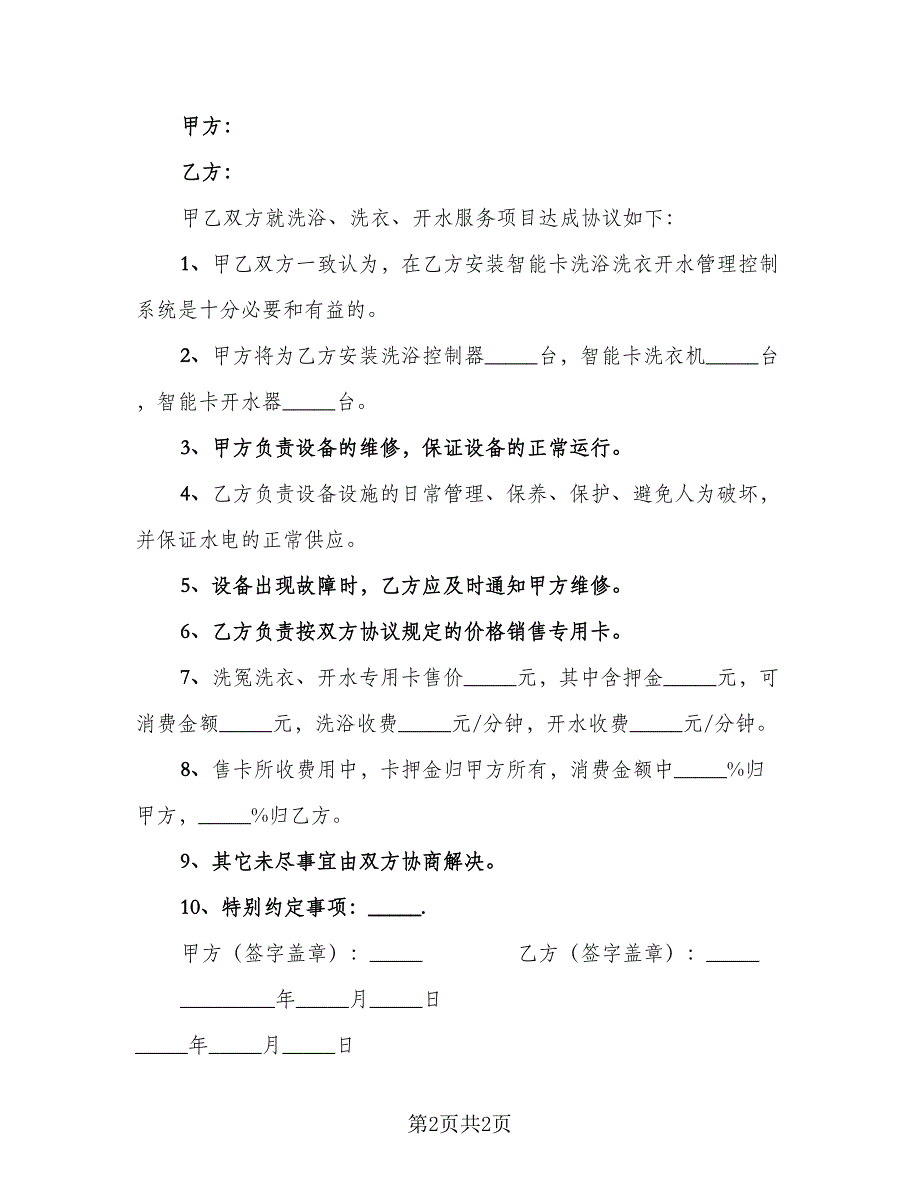 甲方：
乙方：
甲乙双方就洗浴、洗衣、开水服务项目达成协议如下：
1、甲乙双方一致认为，在乙方安装智能卡洗浴洗衣开水管理控制
系统是十分必要和有益的。
2、甲方将为乙方安装洗浴控制器_____台，智能卡洗衣机_____台
，智能卡开水器_____台。
3、甲方负责设备的维修，保证设备的正常运行。
4、乙方负责设备设施的日常管理、保养、保护、避免人为破坏，
并保证水电的正常供应。
5、设备出现故障时，乙方应及时通知甲方维修。
6、乙方负责按双方协议规定的价格销售专用卡。
7、洗冤洗衣、开水专用卡售价_____元，其中含押金_____元，可
消费金额_____元，洗浴收费_____元/分钟，开水收费_____元/分钟。
8、售卡所收费用中，卡押金归甲方所有，消费金额中_____%归
甲方，_____%归乙方。
9、其它未尽事宜由双方协商解决。
10、特别约定事项：_____.
甲方（签字盖章）：_____ 乙方（签字盖章）：_____
_________年_____月_____日
_____年_____月_____日
第2页共2页